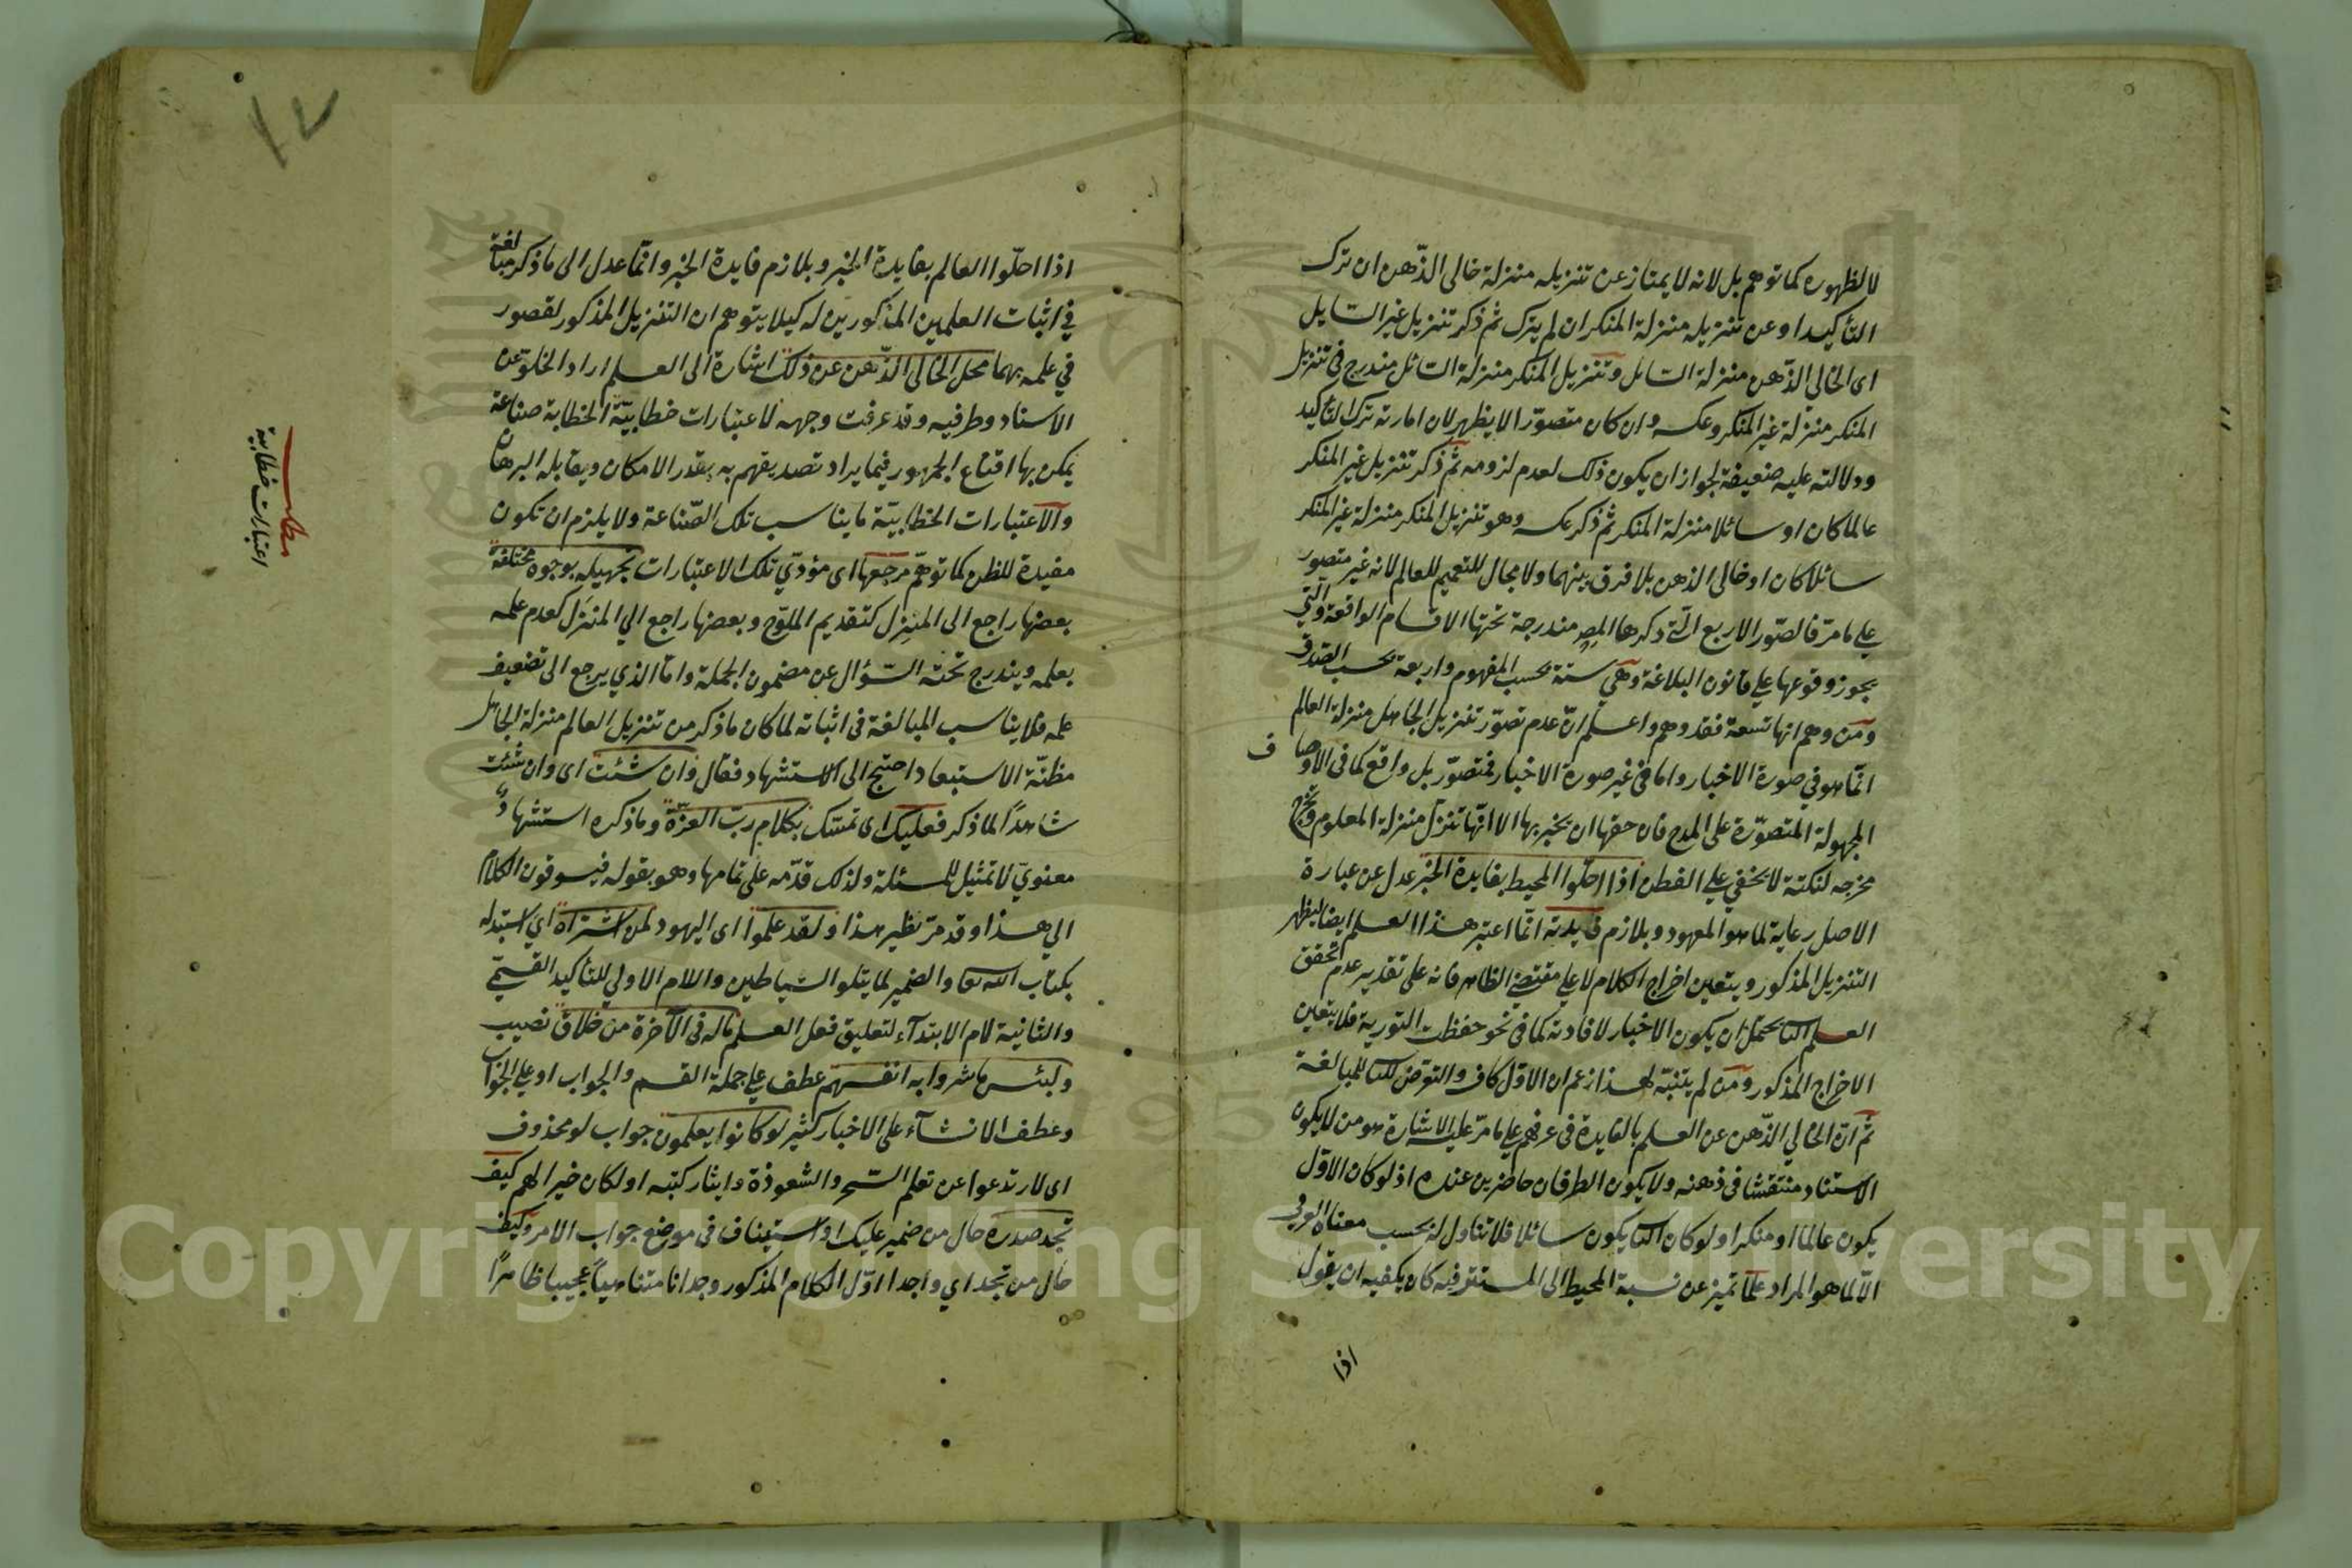 لا لظهوره كما توهم بل لانه لا يمتاز عن تنزيله منزلة خالى الذّهن ان ترك
التأكيد او عن تنزيله منزلة المنكر ان لم يترك ثم ذكر تنزيل غير السايل
اى الخالى الذّهن منزلة السائل وتنزيل المنكر منزلة السائل مندرج فى تنزيل
المنكر منزلة غير المنكر وعكسه وان كان متصوّرا الا يظهر لان امارته ترك التأكيد
ودلالته عليه ضعيفة لجواز ان يكون ذلك لعدم لزومه ثم ذكر تنزيل غير المنكر
عالما كان او سائلا منزلة المنكر ثم ذكر عكسه وهو تنزيل المنكر منزلة غير المنكر
سائلا كان او خالى الذهن بلا فرق بينهما ولا مجال للتعميم للعالم لانه غير متصور
على ما مرّ فالصّور الاربع الّتى ذكرها المص مندرجة تحتها الاقسام الواقعة والّتى
يجوز وقوعها على قانون البلاغة وهى ستة بحسب المفهوم واربعة بحسب الصّدق
ومن وهم انها تسعة فقد وهم واعلم انّ عدم تصوّر تنزيل الجاهل منزلة العالم
انّما هو فى صورة الاخبار واما فى غير صورة الاخبار فمتصوّر بل واقع كما فى الاوصاف
المجهولة المتصوّرة على المدح فان حقها ان يخبر بها الا انّها تنزل منزلة المعلوم وتخرج
مخرجه لنكتة لا يخفى على الفطن اذا احلّوا المحيط بفايدة الخبر عدل عن عبارة
الاصل رعاية لما هو المعهود وبلازم فايدته انّما اعتبر هذا العلم ايضا ليظهر
التنزيل المذكور ويتعين اخراج الكلام لا على مقتضى الظاهر فانه على تقدير عدم تحقق
العلم الثا يحتمل ان يكون الاخبار لافادته كما فى نحو حفظت التورية فلا يتعين
الاخراج المذكور ومن لم يتنبّه لهذا زعم ان الاوّل كاف والتعرّض للثا للمبالغة
ثم انّ الخالي الذّهن عن العلم بالفايدة فى عرفهم على ما مرّ عليه الاشارة هو من لا يكون
الاسناد منتقشا فى ذهنه ولا يكون الطرفان حاضرين عنده اذ لو كان الاوّل
يكون عالما او منكرا ولو كان الثا يكون سائلا فلا تناول له بحسب معناه العرفى
الّا لما هو المراد علما تميز عن نسبة المحيط الى المستتر فيه كان يكفيه ان يقول
اذا
١٢
اذا احلّوا العالم بفايدة الخبر وبلازم فايدة الخبر وانّما عدل الى ما ذكر مبالغة
في اثبات العلمين المذكورين له كيلا يتوهم ان التنزيل المذكور لقصور
في علمه بهما محل الخالى الذّهن عن ذلك اشارة الى العلم اراد الخلو عن
الاسناد وطرفيه وقد عرفت وجهه لاعتبارات خطابيّة الخطابة صناعة
يمكن بها اقناع الجمهور فيما يراد تصديقهم به بقدر الامكان ويقابله البرهان
والاعتبارات الخطابيّة ما يناسب تلك الصّناعة ولا يلزم ان تكون
مفيدة للظن كما توهّم مرجعها اى مؤدّي تلك الاعتبارات تجهيله بوجوه مختلفة
بعضها راجع الى المنزل كتقديم الملوّح وبعضها راجع الي المنزل كعدم علمه
بعلمه ويندرج تحته السّؤال عن مضمون الجملة وامّا الذي يرجع الى تضعيف
علمه فلا يناسب المبالغة فى اثباته لما كان ما ذكر من تنزيل العالم منزلة الجاهل
مظنّة الاستبعاد احتيج الى الاستشهاد فقال وان شئت اى وان شئت
شاهدًا لما ذكر فعليك اى تمسّك بكلام ربّ العزّة وما ذكره استشهاد
معنويّ لا تمثيل للمسئلة ولذلك قدّمه على تمامها وهو بقوله فيسوقون الكلام
الي هذا وقد مرّ نظير هذا ولقد علموا اى اليهود لمن اشتراه اي استبدله
بكتاب الله تعا والضمير لما يتلو الشياطين واللام الاولي للتأكيد القسمي
والثانية لام الابتدآء لتعليق فعل العلم ماله فى الآخرة من خلاق نصيب
ولبئس ما شروا به انفسهم عطف على جملة القسم والجواب او على الجواب
وعطف الانشآء على الاخبار كثير لو كانوا يعلمون جواب لو محذوف
اى لارتدعوا عن تعلم السّحر والشعوذة وايثار كتبه او لكان خيرا لهم كيف
تجد صدره حال من ضمير عليك او استيناف فى موضع جواب الامر وكيف
حال من تجد اي واجدا اوّل الكلام المذكور وجدانا متناهيا عجيبا ظاهرًا
مطلب
اعتبارات خطابية
Copyright © King Saud University